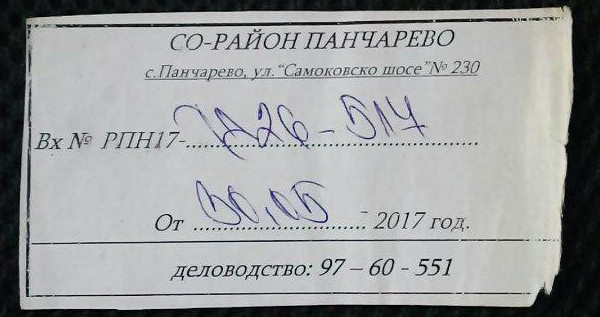 СО-РАЙОН ПАНЧАРЕВО
с.Панчарево, ул.“Самоковско шосе”№ 230
Вх № РПН17-..........26-517
От .......................... - 2017 год.
деловодство: 97 – 60 - 551